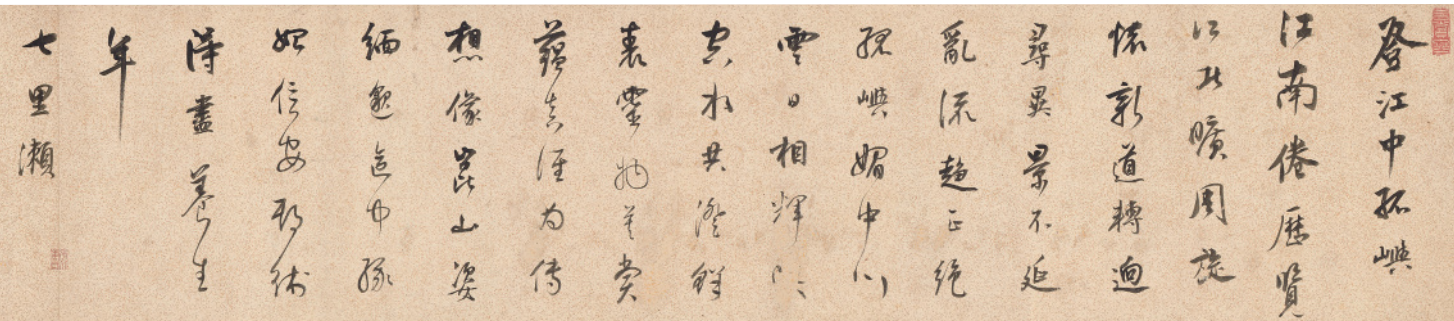 登江中孤嶼
江南倦歷覽
江北曠周旋
懷新道轉迥
尋異景不延
亂流趨正絕
孤嶼媚中川
雲日相輝映
空水共澄鮮
表靈物莫賞
蘊真誰為傳
想像崑山姿
緬邈區中緣
始信安期術
得盡養生
年
七里瀨